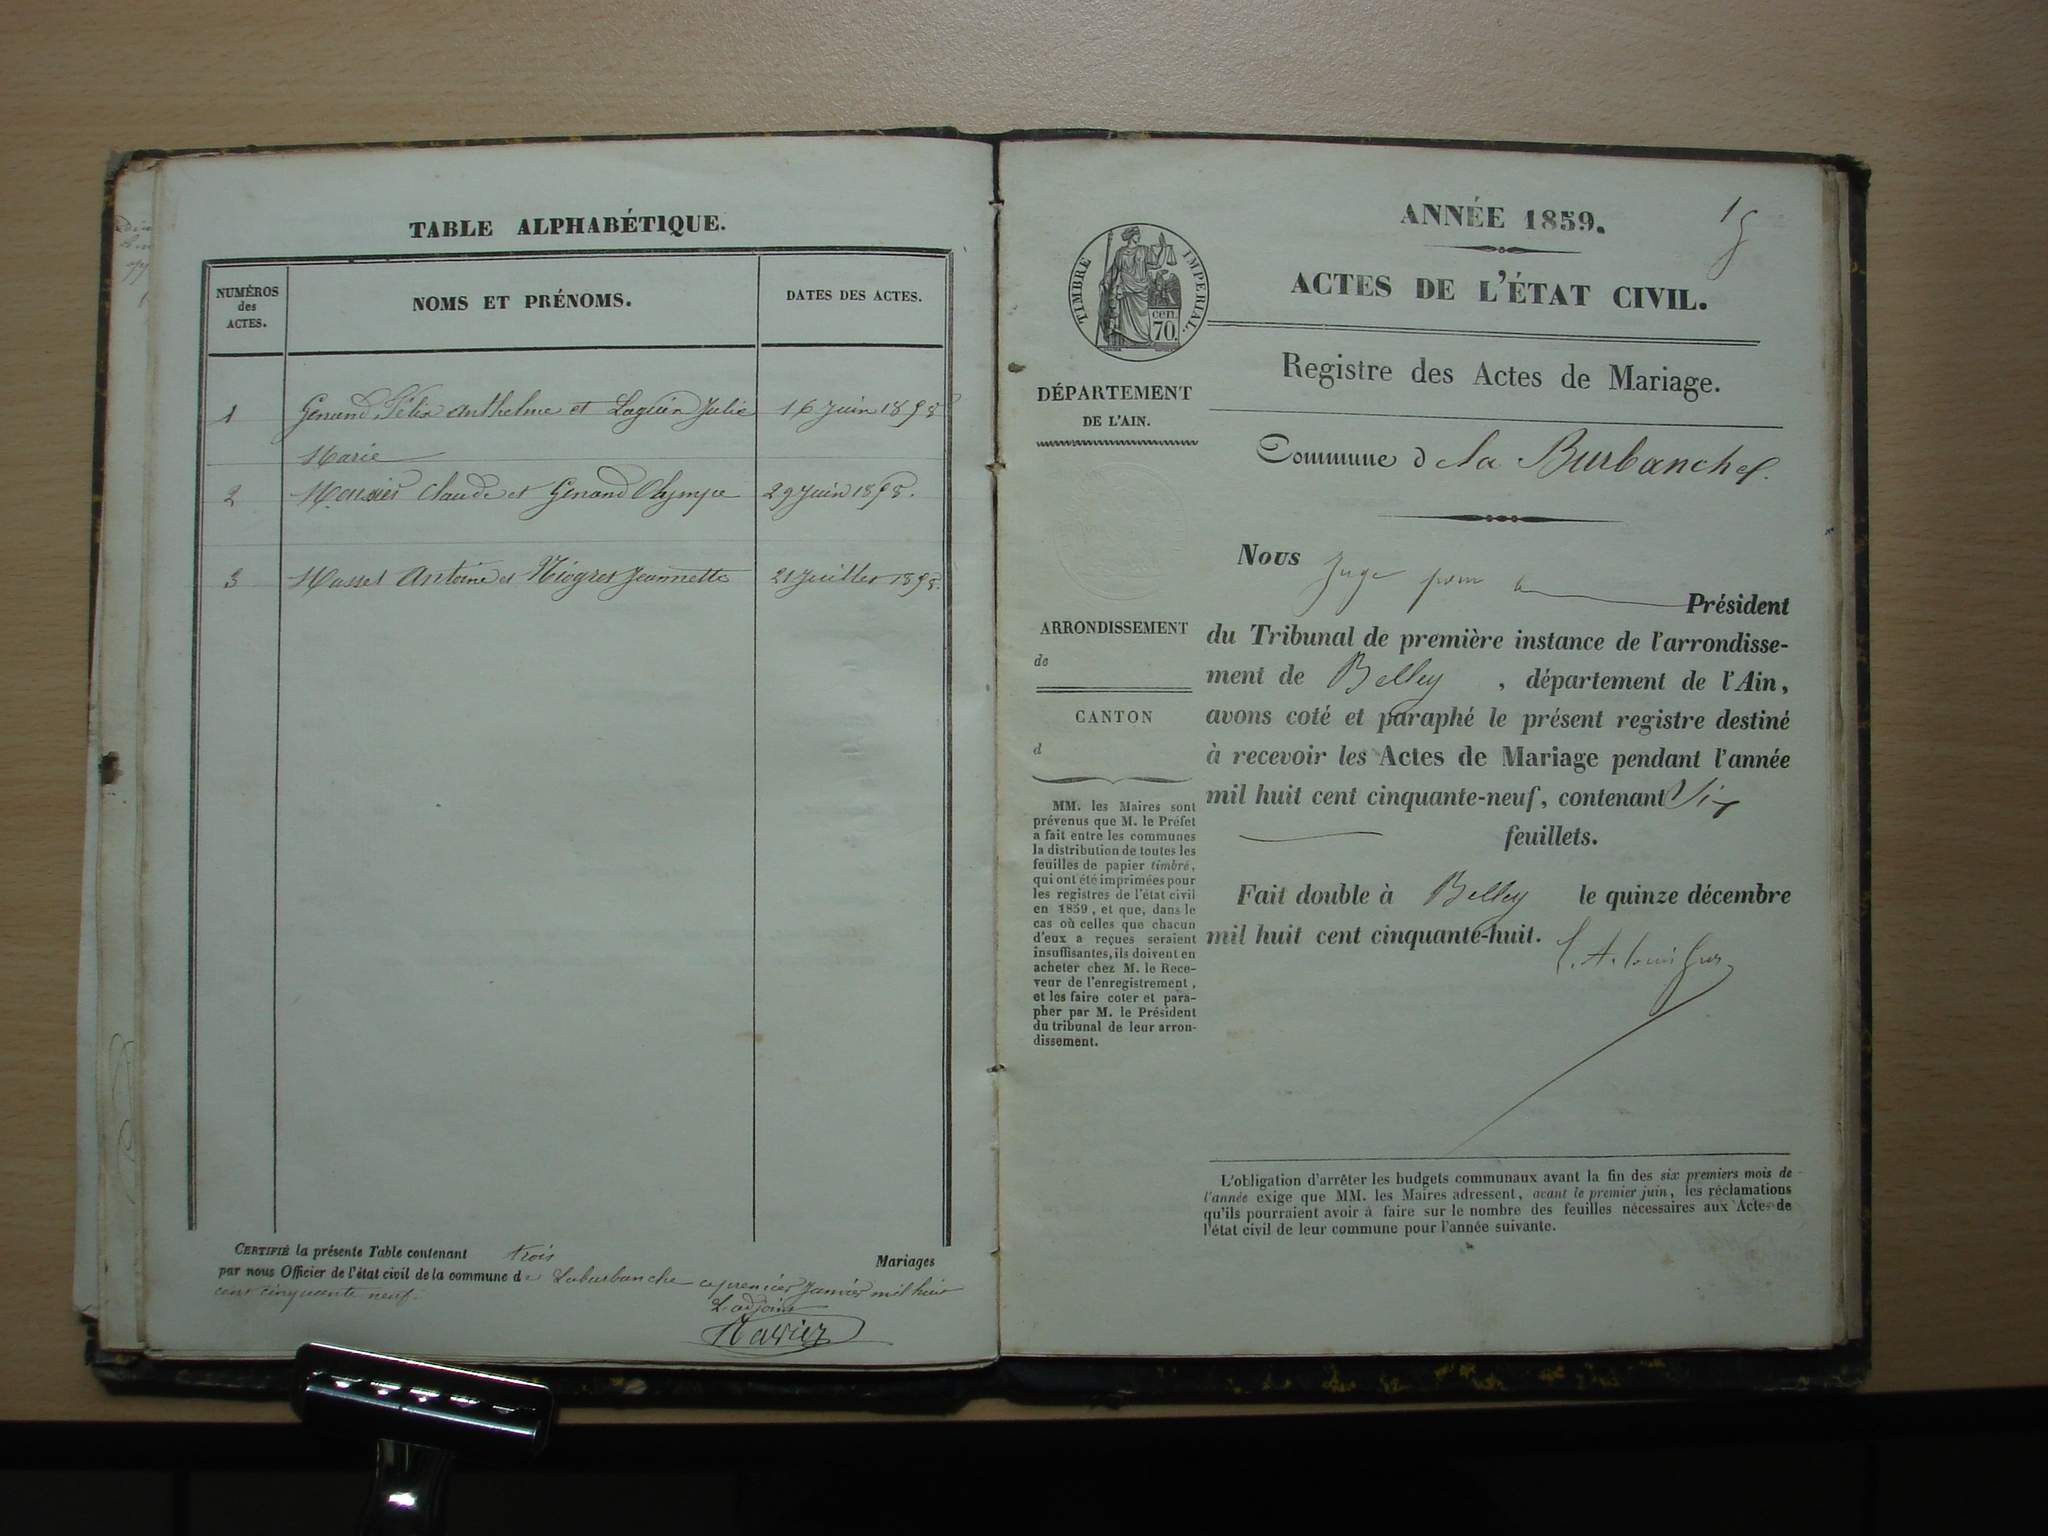 TABLE ALPHABÉTIQUE.
NUMÉROS
des
ACTES.
NOMS ET PRÉNOMS.
DATES DES ACTES.
1 Genand Félix Anthelme et Laguin Julie 16 Juin 1858
Marie
2 Claude et Genand Olympe 29 Juin 1858.
3 Masset Antoine et Niogret Jeannette 21 Juillet 1858.
CERTIFIÉ la présente Table contenant trois Mariages
par nous Officier de l'état civil de la commune de Laburbanche ce premier Janvier mil huit
cent cinquante neuf.
L'adjoint
1
ANNÉE 1859.
ACTES DE L'ÉTAT CIVIL.
TIMBRE IMPERIAL.
cen.
70.
Registre des Actes de Mariage.
DÉPARTEMENT
DE L'AIN.
Commune d la Burbanche.
ARRONDISSEMENT
de
CANTON
d
MM. les Maires sont
prévenus que M. le Préfet
a fait entre les communes
la distribution de toutes les
feuilles de papier timbré,
qui ont été imprimées pour
les registres de l'état civil
en 1859, et que, dans le
cas où celles que chacun
d'eux a reçues seraient
insuffisantes, ils doivent en
acheter chez M. le Rece-
veur de l'enregistrement,
et les faire coter et para-
pher par M. le Président
du tribunal de leur arron-
dissement.
Nous Juge pour le Président
du Tribunal de première instance de l'arrondisse-
ment de Belley, département de l'Ain,
avons coté et paraphé le présent registre destiné
à recevoir les Actes de Mariage pendant l'année
mil huit cent cinquante-neuf, contenant Six
feuillets.
Fait double à Belley le quinze décembre
mil huit cent cinquante-huit.
L'obligation d'arrêter les budgets communaux avant la fin des six premiers mois de
l'année exige que MM. les Maires adressent, avant le premier juin, les réclamations
qu'ils pourraient avoir à faire sur le nombre des feuilles nécessaires aux Actes de
l'état civil de leur commune pour l'année suivante.